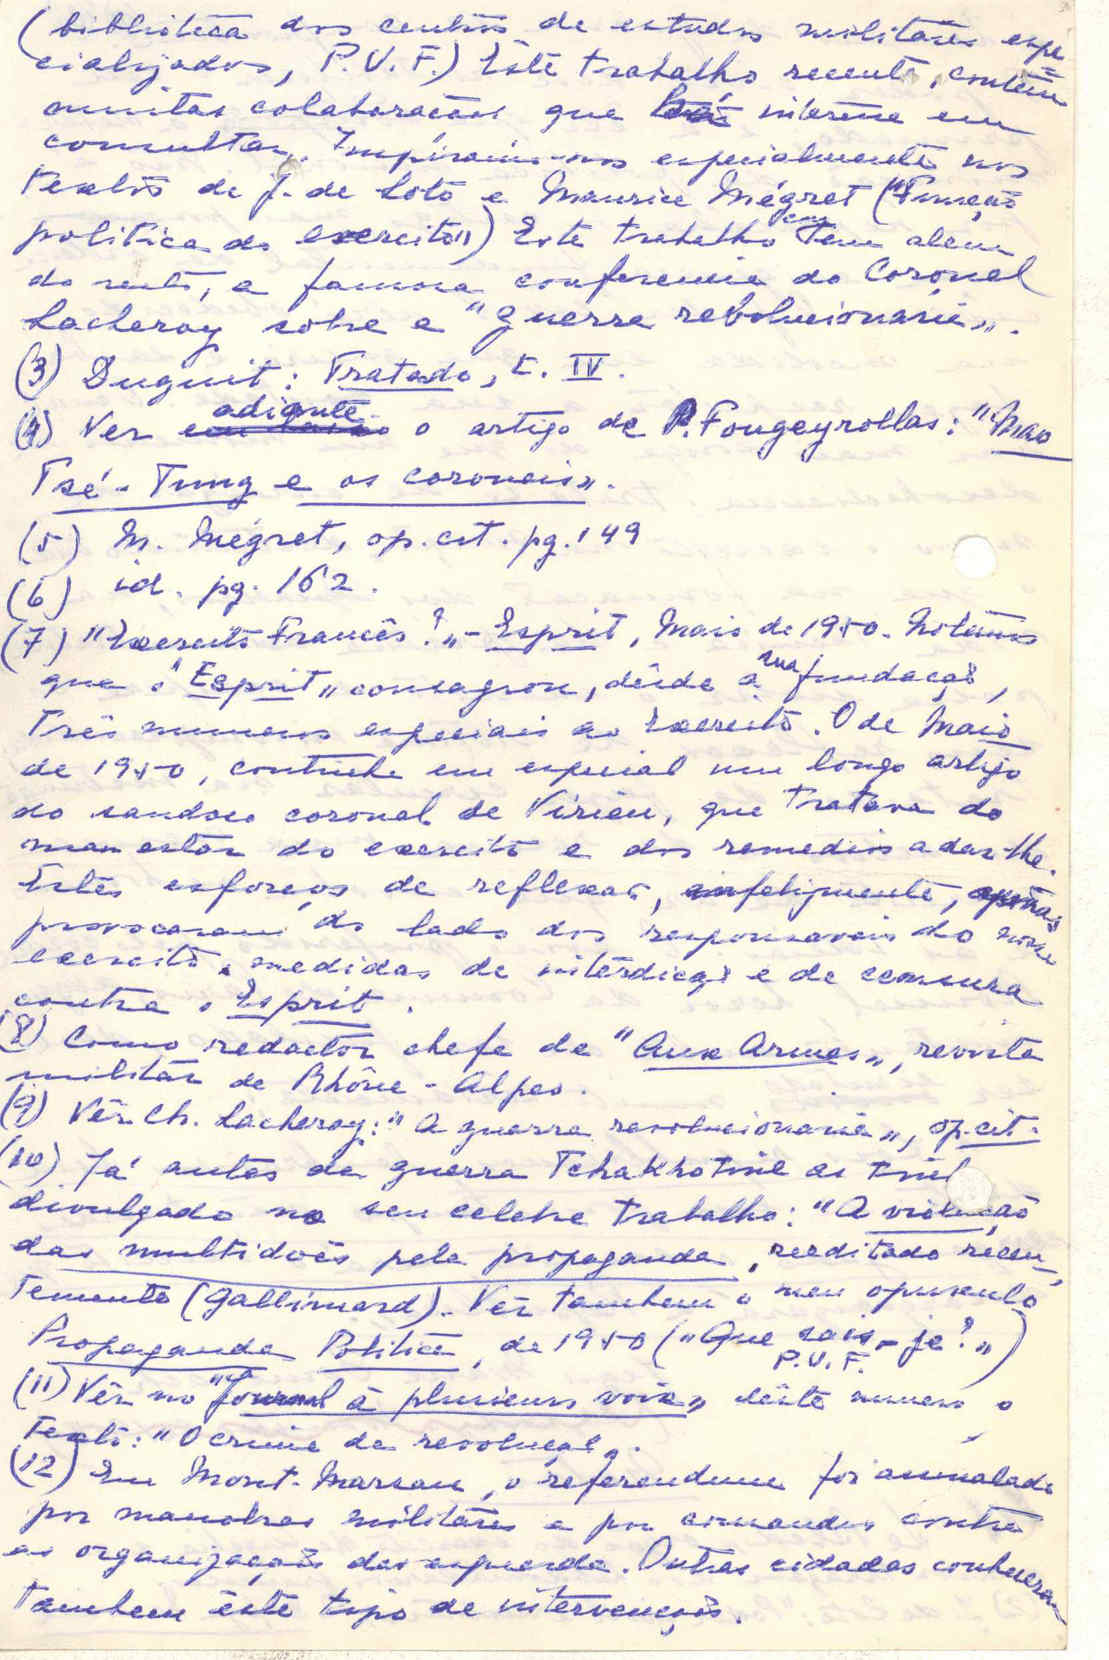 (biblioteca dos centros de estudos militares espe
cializados, P.U.F.) Êste trabalho recente, contém
muitas colaborações que há interêsse em
consultar. Inspirámo-nos especialmente nos
textos de J. de Soto e Maurice Mégret ("Função
politica do exercito") Este trabalho tem alem
do resto, a famosa conferencia do Coronel
Lacheroy sobre a "guerra revolucionaria".
(3) Duguit: Tratado, t. IV.
(4) Ver adiante o artigo de P. Fougeyrollas: "Mao
Tsé-Tung e os coroneis".
(5) M. Mégret, op. cit. pg. 149
(6) id. pg. 162.
(7) "Exercito Francês?" - Esprit, Maio de 1950. Notemos
que o "Esprit" consagrou, desde a sua fundação,
três numeros especiais ao Exercito. O de Maio
de 1950, continha em especial um longo artigo
do saudoso coronel de Virieu, que tratava do
mau estar do exercito e dos remedios a dar-lhe.
Estes esforços de reflexão, infelizmente, apenas
provocaram do lado dos responsaveis do nosso
exercito, medidas de interdição e de censura
contra o Esprit.
(8) Como redactor chefe de "Aux Armes", revista
militar de Rhône-Alpes.
(9) Vêr Ch. Lacheroy: "A guerra revolucionaria", op. cit.
(10) Já antes da guerra Tchakhotine as tinha
divulgado no seu celebre trabalho: "A violação
das multidões pela propaganda, reeditado recen-
temente (Gallimard). Vêr tambem o meu opusculo
Propaganda Politica, de 1950 ("Que sais-je?")
P.U.F.
(11) Vêr no "Journal à plusieurs voix" dêste numero o
texto: "O crime da revolução".
(12) Em Mont-Marsan, o referendum foi assinalado
por manobras militares e por comandos contra
as organizações das esquerda. Outras cidades conheceram
tambem êste tipo de intervenções.